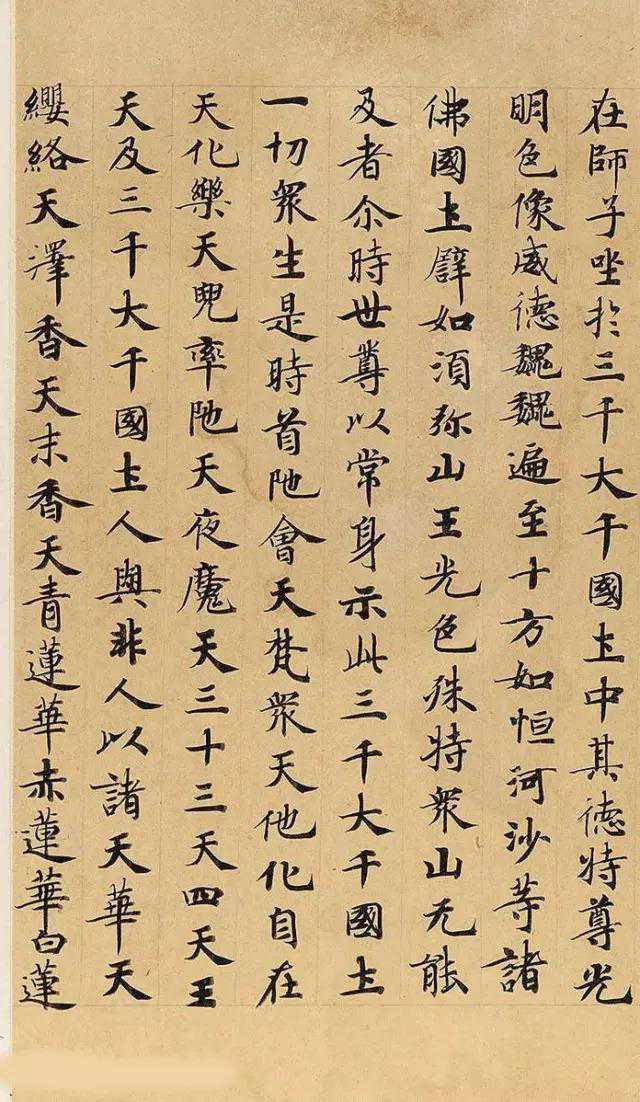 在師子㘴扵三千大千國𡈽中其徳特尊光
明色像威徳巍巍遍至十方如恒河沙等諸
佛國𡈽譬如湏弥山王光色殊特衆山无能
及者尒時世尊以常身示此三千大千國𡈽
一切衆生是時首陁會天梵衆天他化自在
天化樂天兜率陁天夜魔天三十三天四天王
天及三千大千國𡈽人與非人以諸天華天
纓絡天澤香天末香天青蓮華赤蓮華白蓮